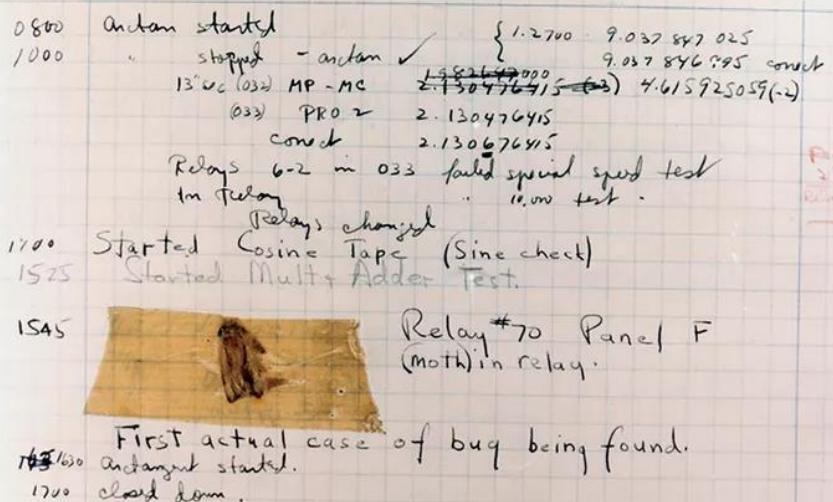 0800 arctan started { 1.2700 9.037 847 025
1000 " stopped - arctan ✓ 9.037 846 995 correct
13"uc (032) MP - MC 2.130476415 (-3) 4.615925059(-2)
(033) PRO 2 2.130476415
correct 2.130676415
Relays 6-2 in 033 failed special speed test
In relay " 10,000 test .
Relays changed
1100 Started Cosine Tape (Sine check)
1525 Started Mult + Adder Test.
1545 Relay #70 Panel F
(moth) in relay.
First actual case of bug being found.
1630 arctangent started.
1700 closed down.